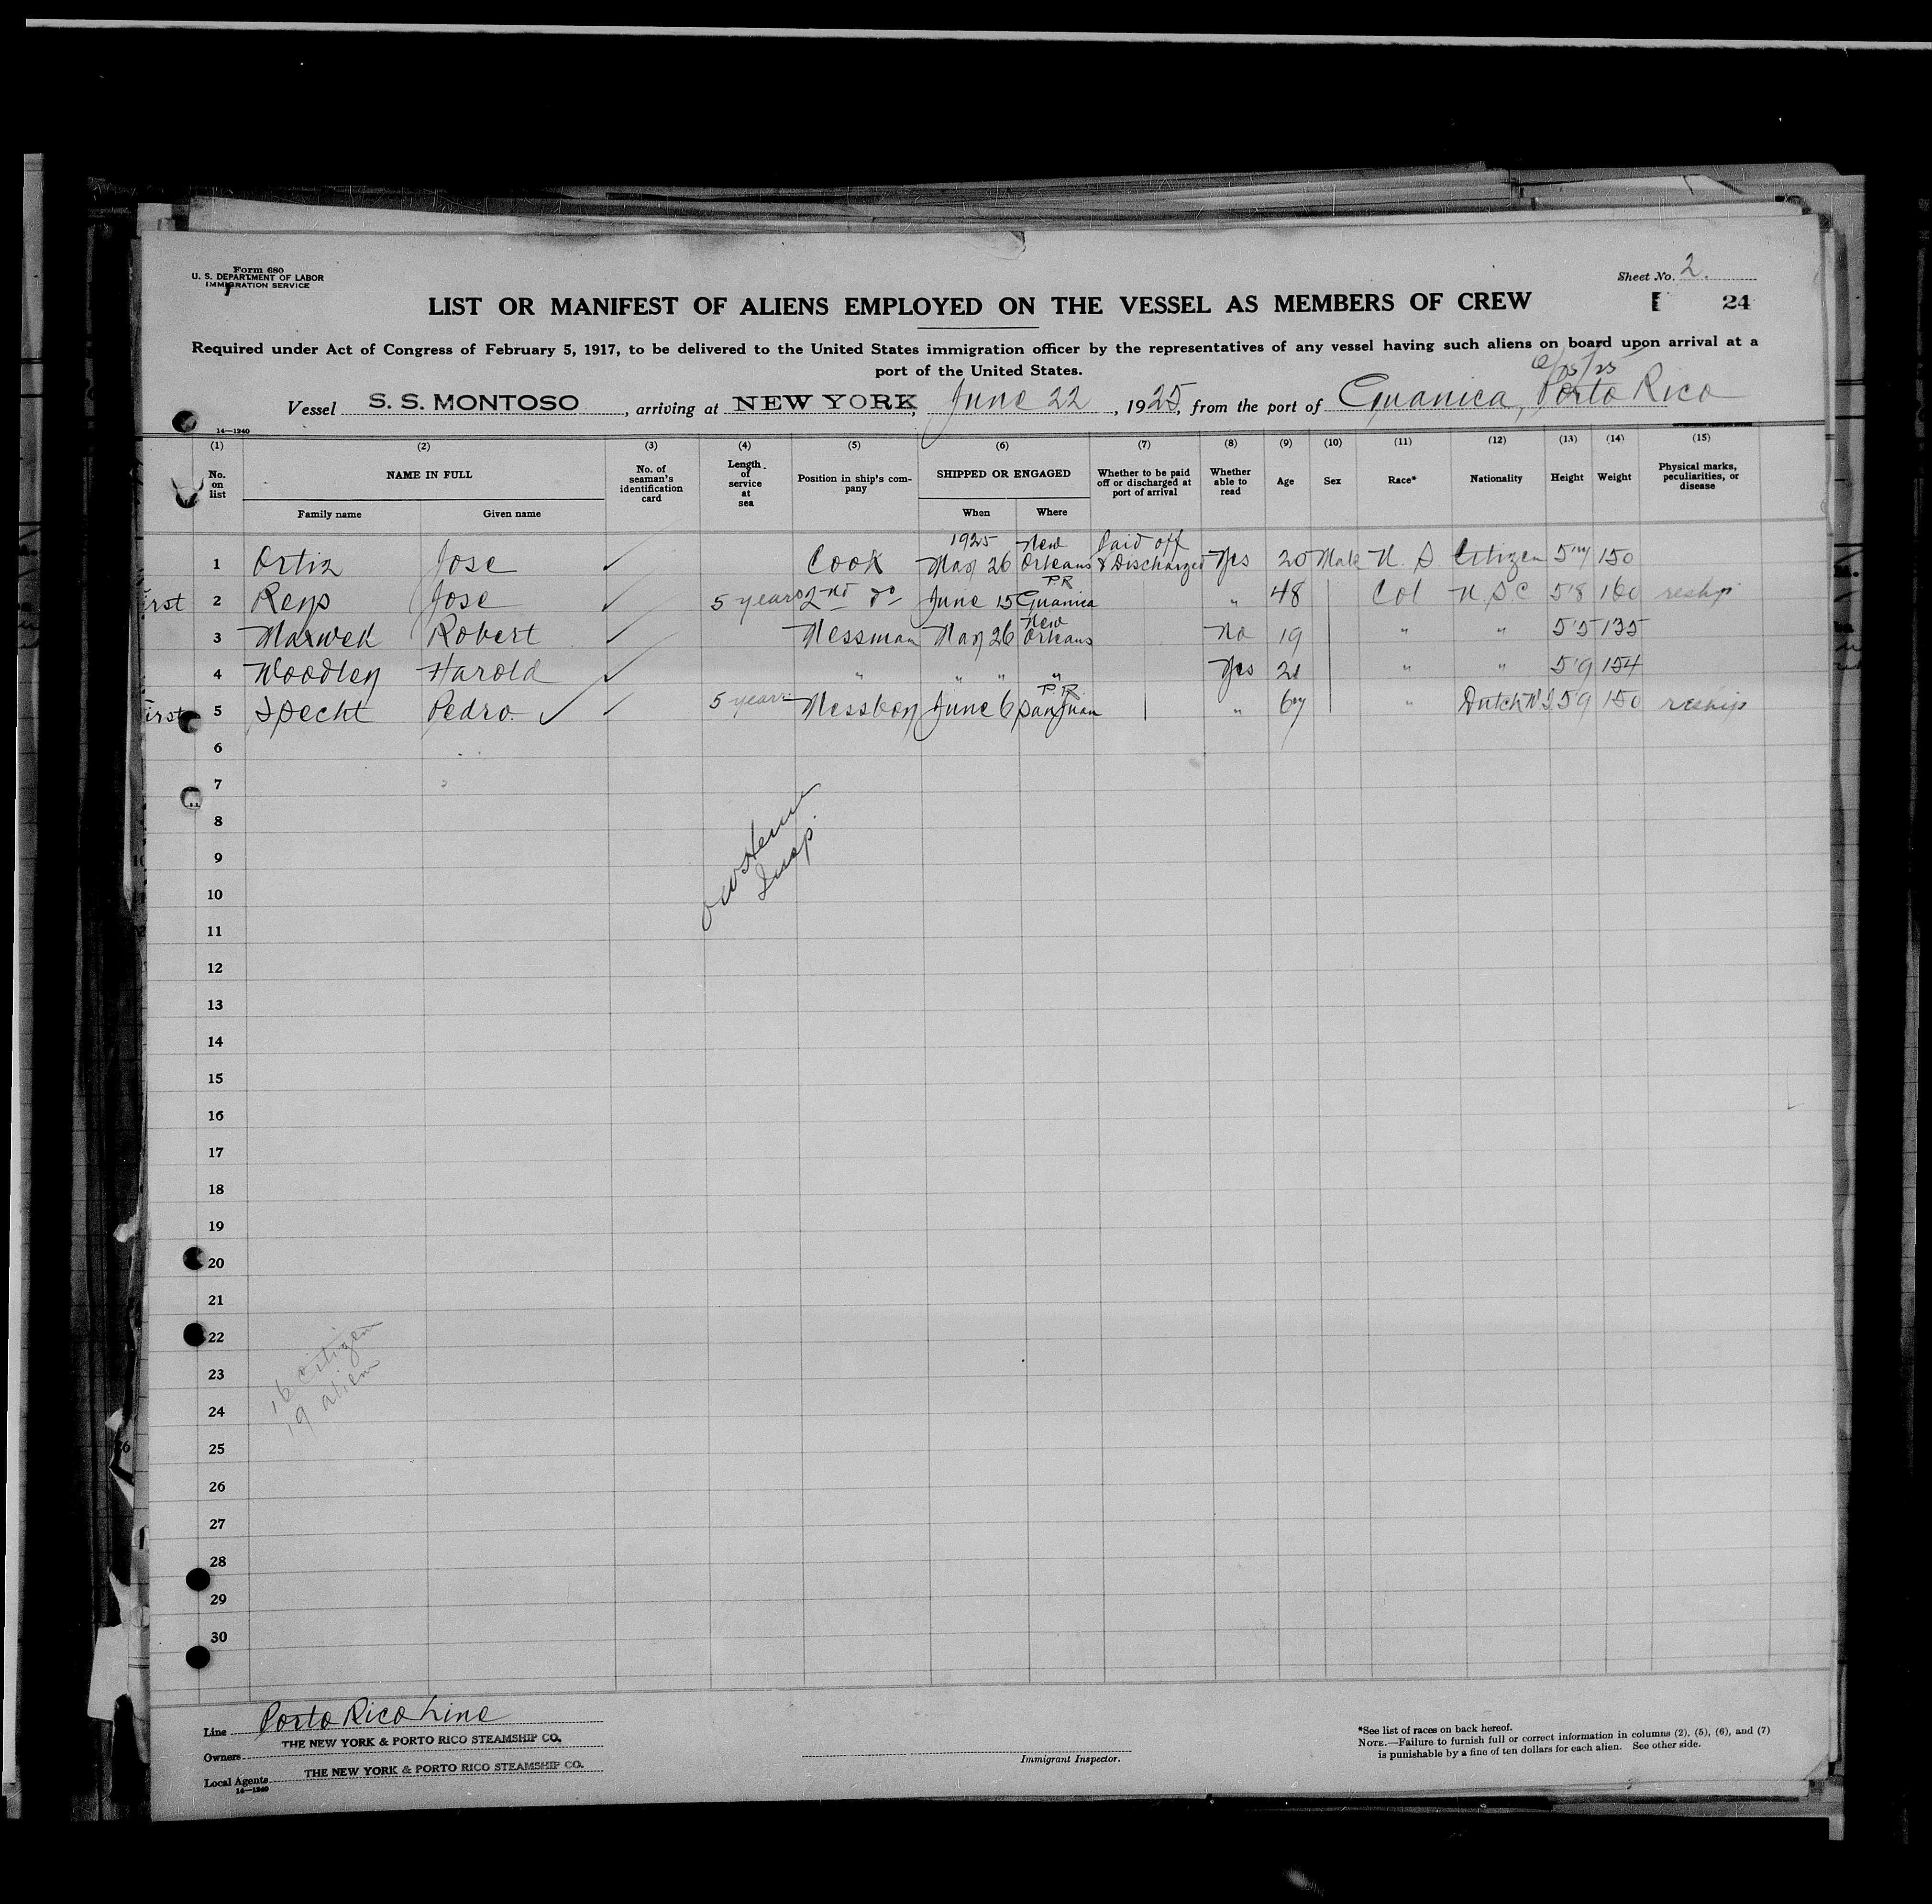 Form 680
U. S. DEPARTMENT OF LABOR
IMMIGRATION SERVICE
Sheet No. 2.
LIST OR MANIFEST OF ALIENS EMPLOYED ON THE VESSEL AS MEMBERS OF CREW
24
Required under Act of Congress of February 5, 1917, to be delivered to the United States immigration officer by the representatives of any vessel having such aliens on board upon arrival at a
port of the United States.
Vessel S. S. MONTOSO, arriving at NEW YORK, June 22, 1925, from the port of Guanica, Porto Rico
14—1240
(1) (2) (3) (4) (5) (6) (7) (8) (9) (10) (11) (12) (13) (14) (15)
No. on list NAME IN FULL Family name Given name No. of seaman's identification card Length of service at sea Position in ship's company SHIPPED OR ENGAGED When Where Whether to be paid off or discharged at port of arrival Whether able to read Age Sex Race* Nationality Height Weight Physical marks, peculiarities, or disease
1 Ortiz Jose ✓ Cook 1925 May 26 New Orleans Paid off & Discharged Yes 20 Male U. S. Citizen 5'7 150
First 2 Reys Jose ✓ 5 years 2nd do June 15 P.R. Guanica " 48 Col U S C 5'8 160 reship
3 Marwek Robert ✓ Messman May 26 New Orleans No 19 " " 5'5 135
4 Woodley Harold ✓ " " " " Yes 21 " " 5'9 154
First 5 Specht Pedro. ✓ ✓ 5 years Messboy June 6 P.R. San Juan " " Dutch W I 5'9 150 reship
6
7
8
9
10
11
12
13
14
15
16
17
18
19
20
21
22
23
24
25
26
27
28
29
30
Insp.
16 citizen
19 alien
Line Porto Rico Line
Owners THE NEW YORK & PORTO RICO STEAMSHIP CO.
Local Agents THE NEW YORK & PORTO RICO STEAMSHIP CO.
14—1240
Immigrant Inspector.
*See list of races on back hereof.
NOTE.—Failure to furnish full or correct information in columns (2), (5), (6), and (7)
is punishable by a fine of ten dollars for each alien. See other side.